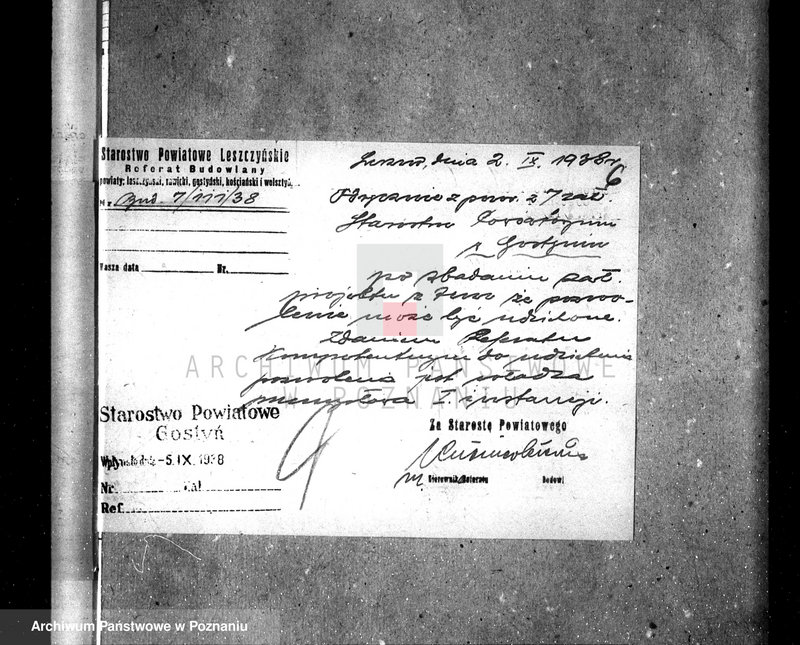 Starostwo Powiatowe Leszczyńskie
Referat Budowlany
powiaty: leszczyński, rawicki, gostyński, kościański i wolsztyń.
Nr Bud. 7/111/38
Wasza data Nr.
Leszno, dnia 2. IX. 1938 r.
6
z pow. z 7 zał.
Starostwu
w Gostyniu
po zbadaniu zał.
projektu z tem że pozwo-
lenie może być udzielone.
Zdaniem Referatu
kompetentnym do udzielenia
pozwolenia jest władza
przemysłowa I. instancji.
ARCHIWUM PAŃSTWOWE
W POZNANIU
Za Starostę Powiatowego
Kierownik Referatu Budowl
Starostwo Powiatowe
Gostyń
Wpłynęło dnia -5. IX. 1938
Nr. zał.
Ref.
Archiwum Państwowe w Poznaniu